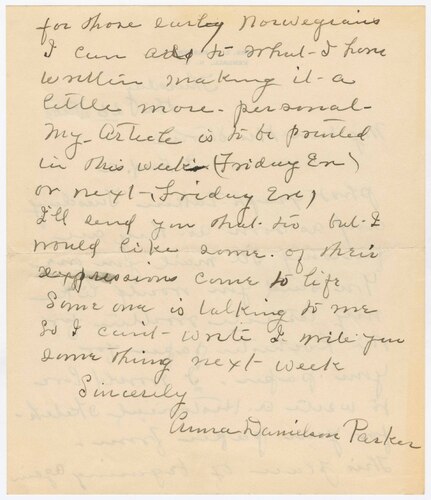 for those early Norwegians
I can add to what I have
written making it a
little more personal-
My Article is to be printed
in this week (Friday Eve)
or next (Friday Eve)
I'll send you that too but I
would like some of their
expressions come to life
Some one is talking to me
so I can't write I write you
some thing next week
Sincerily
Anna Danielson Parker